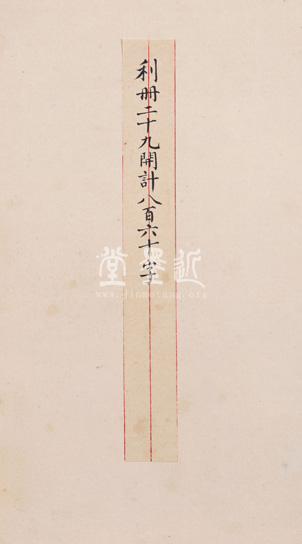 利冊二十九開計八百六十字
近墨堂
www.jinmotang.org